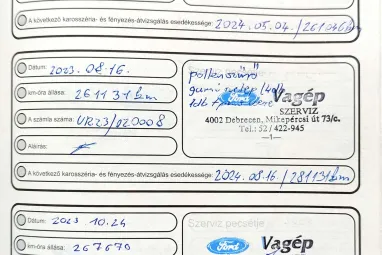 A következő karosszéria- és fényezés-átvizsgálás esedékessége: 2024.05.04./261046 km
Dátum: 2023.08.16.
km-óra állása: 261131 km
A számla száma: UR23/020008
Aláírás:
pollenszűrő
gumi
Ford Vagép
SZERVIZ
4002 Debrecen, Mikepércsi út 73/c.
Tel.: 52/422-945
—1—
A következő karosszéria- és fényezés-átvizsgálás esedékessége: 2024.08.16/281131 km
Dátum: 2023.10.24
km-óra állása: 267670
Szerviz pecsétje
Ford Vagép